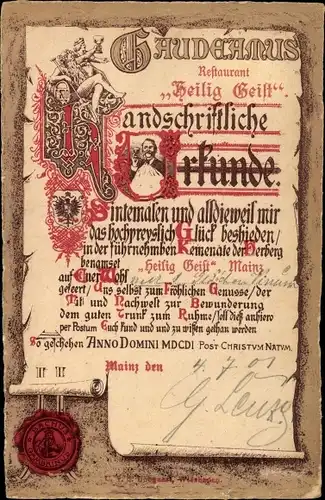 GAUDEAMUS
Restaurant
„Heilig Geist".
Handschriftliche
Urkunde.
Sintemalen und alldieweil mir
das hochpreysslich Glück beshieden/
in der führnehmben Kemenate der Herberg
benamset „Heilig Geist" Mainz
auf Ener Wohl
geleert/ Uns selbst zum Fröhlichen Genusse/ der
Mit und Nachwelt zur Bewunderung
dem guten Trunk zum Ruhme/ soll diess anhiero
per Postum Euch kund und und zu wissen gethan werden
So geschehen ANNO DOMINI MDCDI POST CHRISTVM NATVM.
Mainz den 4.7.01